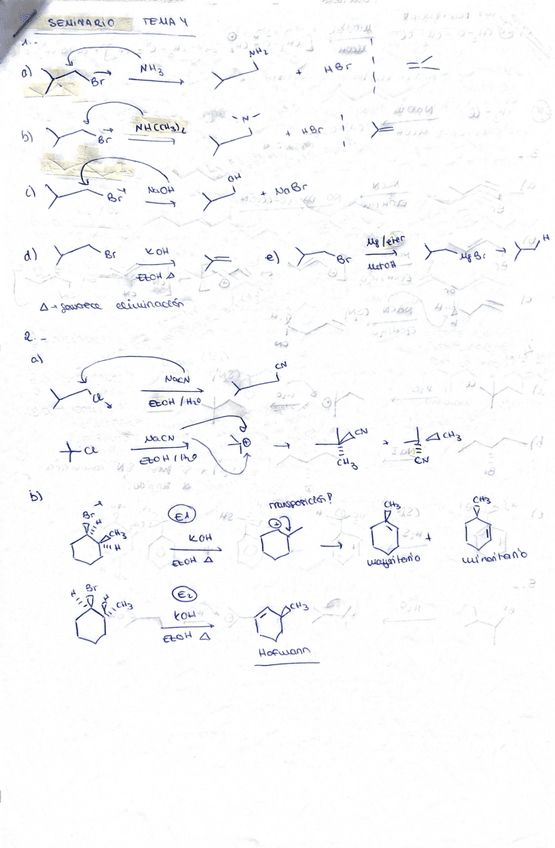 SEMINARIO TEMA 4
1.-
a) Br NH3 NH2 + HBr
b) Br NH(CH3)2 N + HBr
c) Br NaOH OH + NaBr
d) Br KOH EtOH Δ e) Br Mg/eter MeOH MgBr H
Δ → favorece eliminación
2.-
a)
Cl NaCN EtOH/H2O CN
Cl NaCN EtOH/H2O ⊕ CN CH3 + CH3 CN
b) Br H CH3 H E1 KOH EtOH Δ transposición? ⊕ CH3 mayoritario + CH3 minoritario
H Br H CH3 E2 KOH EtOH Δ CH3
Hofmann